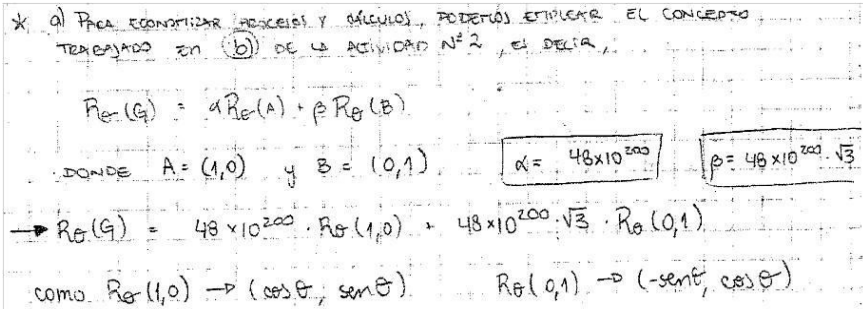 * a) PARA ECONOMIZAR PROCESOS Y CÁLCULOS, PODEMOS EMPLEAR EL CONCEPTO
TRABAJADO EN (b) DE LA ACTIVIDAD Nº 2, ES DECIR,
Rθ(G) = αRθ(A) + βRθ(B)
DONDE A = (1,0) y B = (0,1) α = 48×10²⁰⁰ β = 48×10²⁰⁰·√3
→ Rθ(G) = 48×10²⁰⁰ · Rθ(1,0) + 48×10²⁰⁰·√3 · Rθ(0,1)
como Rθ(1,0) → (cosθ; senθ) Rθ(0,1) → (-senθ, cosθ)